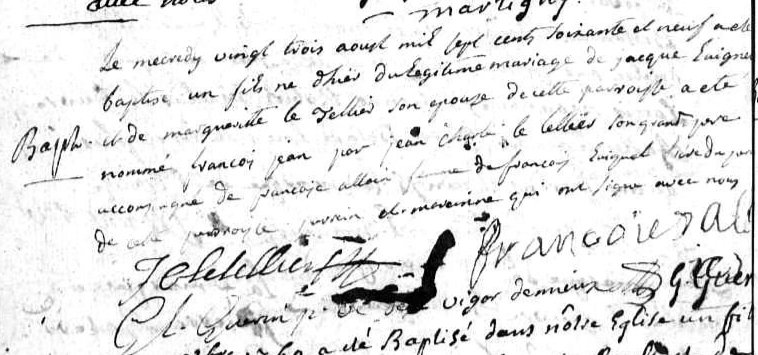 avec nous
martigny.
Bapt. Le mecredy vingt trois aoust mil sept cents soixante et neuf a ete
baptise un fils ne d'hier du legitime mariage de jacque
et de margueritte le Tellier son epouse de cette parroisse a ete
nommé francois jean par jean charle le tellier son grand pere
accompagne de francoise allain femme de francois frere du pere
de cette parroisse parein et mareinne qui ont signe avec nous
J Le tellier francoise al
G. Guerin vigor G. Guer
a été Baptisé dans nôtre Eglise un fil